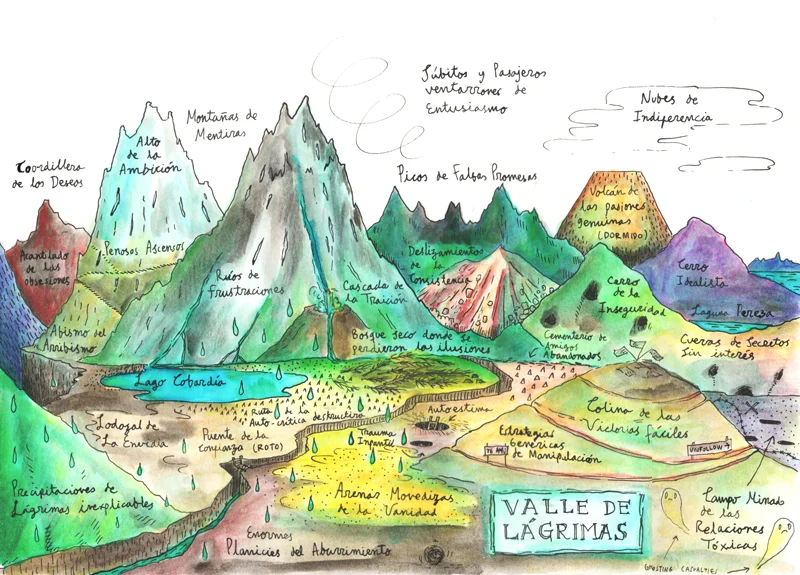 Súbitos y Pasajeros
ventarrones de
Entusiasmo
Nubes de
Indiferencia
Montañas de
Mentiras
Alto
de la
Ambición
Coordillera
de los Deseos
Picos de Falsas Promesas
Volcán de
las pasiones
genuinas
(DORMIDO)
Acantilado
de las
obsesiones
Penosos Ascensos
Deslizamientos
de la
Consistencia
Cerro
Idealista
Ríos de
Frustraciones
Cascada de
la Traición
Cerro
de la
Inseguridad
Laguna Pereza
Abismo del
Arribismo
Bosque seco donde se
perdieron las ilusiones
Cementerio de
Amigos
Abandonados
Cuevas de Secretos
Sin interés
Lago Cobardía
Ruta de la
Auto-crítica destructiva
Autoestima
Colina de las
Victorias fáciles
Lodozal de
La Envidia
Puente de la
Confianza (ROTO)
Trauma
Infantil
Estrategias
Genéricas
de Manipulación
TE AMO
UNFOLLOW
Precipitaciones de
Lágrimas inexplicables
Arenas Movedizas
de la Vanidad
VALLE DE
LÁGRIMAS
Campo Minado
de las
Relaciones
Tóxicas
Enormes
Planicies del Aburrimiento
GHOSTING CASUALTIES